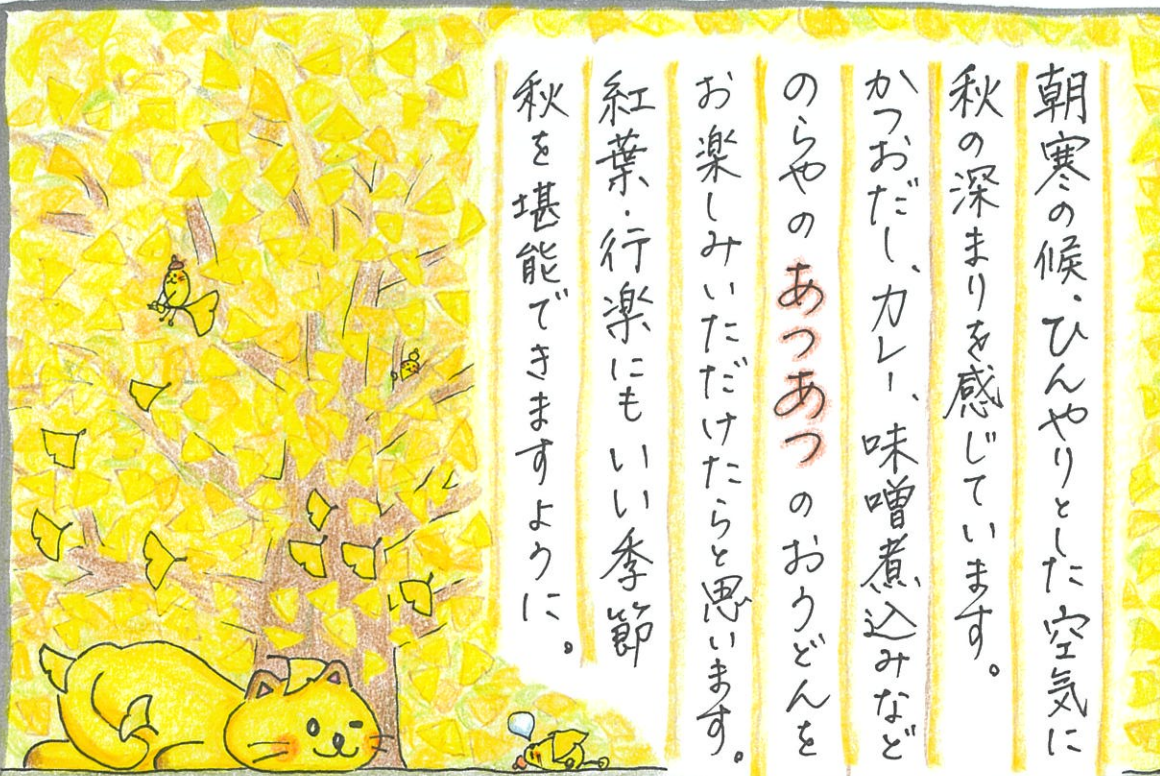 朝寒の候・ひんやりとした空気に
秋の深まりを感じています。
かつおだし、カレー、味噌煮込みなど
のらやのあつあつのおうどんを
お楽しみいただけたらと思います。
紅葉・行楽にもいい季節
秋を堪能できますように。